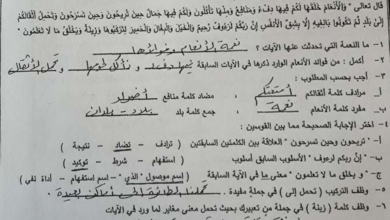 قال تعالى " وَالْأَنْعَامَ خَلَقَهَا لَكُمْ فِيهَا دِفْءٌ وَمَنَافِعُ وَمِنْهَا تَأْكُلُونَ وَلَكُمْ فِيهَا جَمَالٌ حِينَ تُرِيحُونَ وَحِينَ تَسْرَحُونَ وَتَحْمِلُ أَثْقَالَكُمْ
إِلَى بَلَدٍ لَمْ تَكُونُوا بَالِغِيهِ إِلَّا بِشِقِّ الْأَنْفُسِ إِنَّ رَبَّكُمْ لَرَءُوفٌ رَحِيمٌ وَالْخَيْلَ وَالْبِغَالَ وَالْحَمِيرَ لِتَرْكَبُوهَا وَزِينَةً وَيَخْلُقُ مَا لَا تَعْلَمُونَ "
١- ما النعمة التي تتحدث عنها الآيات ؟ نعمة الأنعام وفوائدها
٢- أكمل : من فوائد الأنعام الوارد ذكرها في الآيات السابقة فيها دفء و نأكل لحومها و تحمل الأثقال
٣- أجب بحسب المطلوب :
أ- مرادف كلمة أثقالكم أمتعتكم مضاد كلمة منافع أضرار
ب- مفرد كلمة الأنعام نعمة جمع كلمة بلد بلاد - بلدان
٤- اختر الإجابة الصحيحة مما بين القوسين :
- تريحون وحين تسرحون " العلاقة بين الكلمتين السابقتين ( ترادف - تضاد - نتيجة )
ب - إن ربكم لرءوف " الأسلوب السابق أسلوب ( استفهام - شرط - توكيد )
ج - و يخلق ما لا تعلمون " معنى ما في الآية السابقة ( اسم موصول " الذي " - اسم استفهام - أداة نفي )
- وظف التركيب ( تحمل إلى ) في جملة مفيدة . إلى أماكن بعيدة
- وظف كلمة ( زينة ) في جملة من تعبيرك بحيث تحمل معنى مغاير لما ورد في الآيات